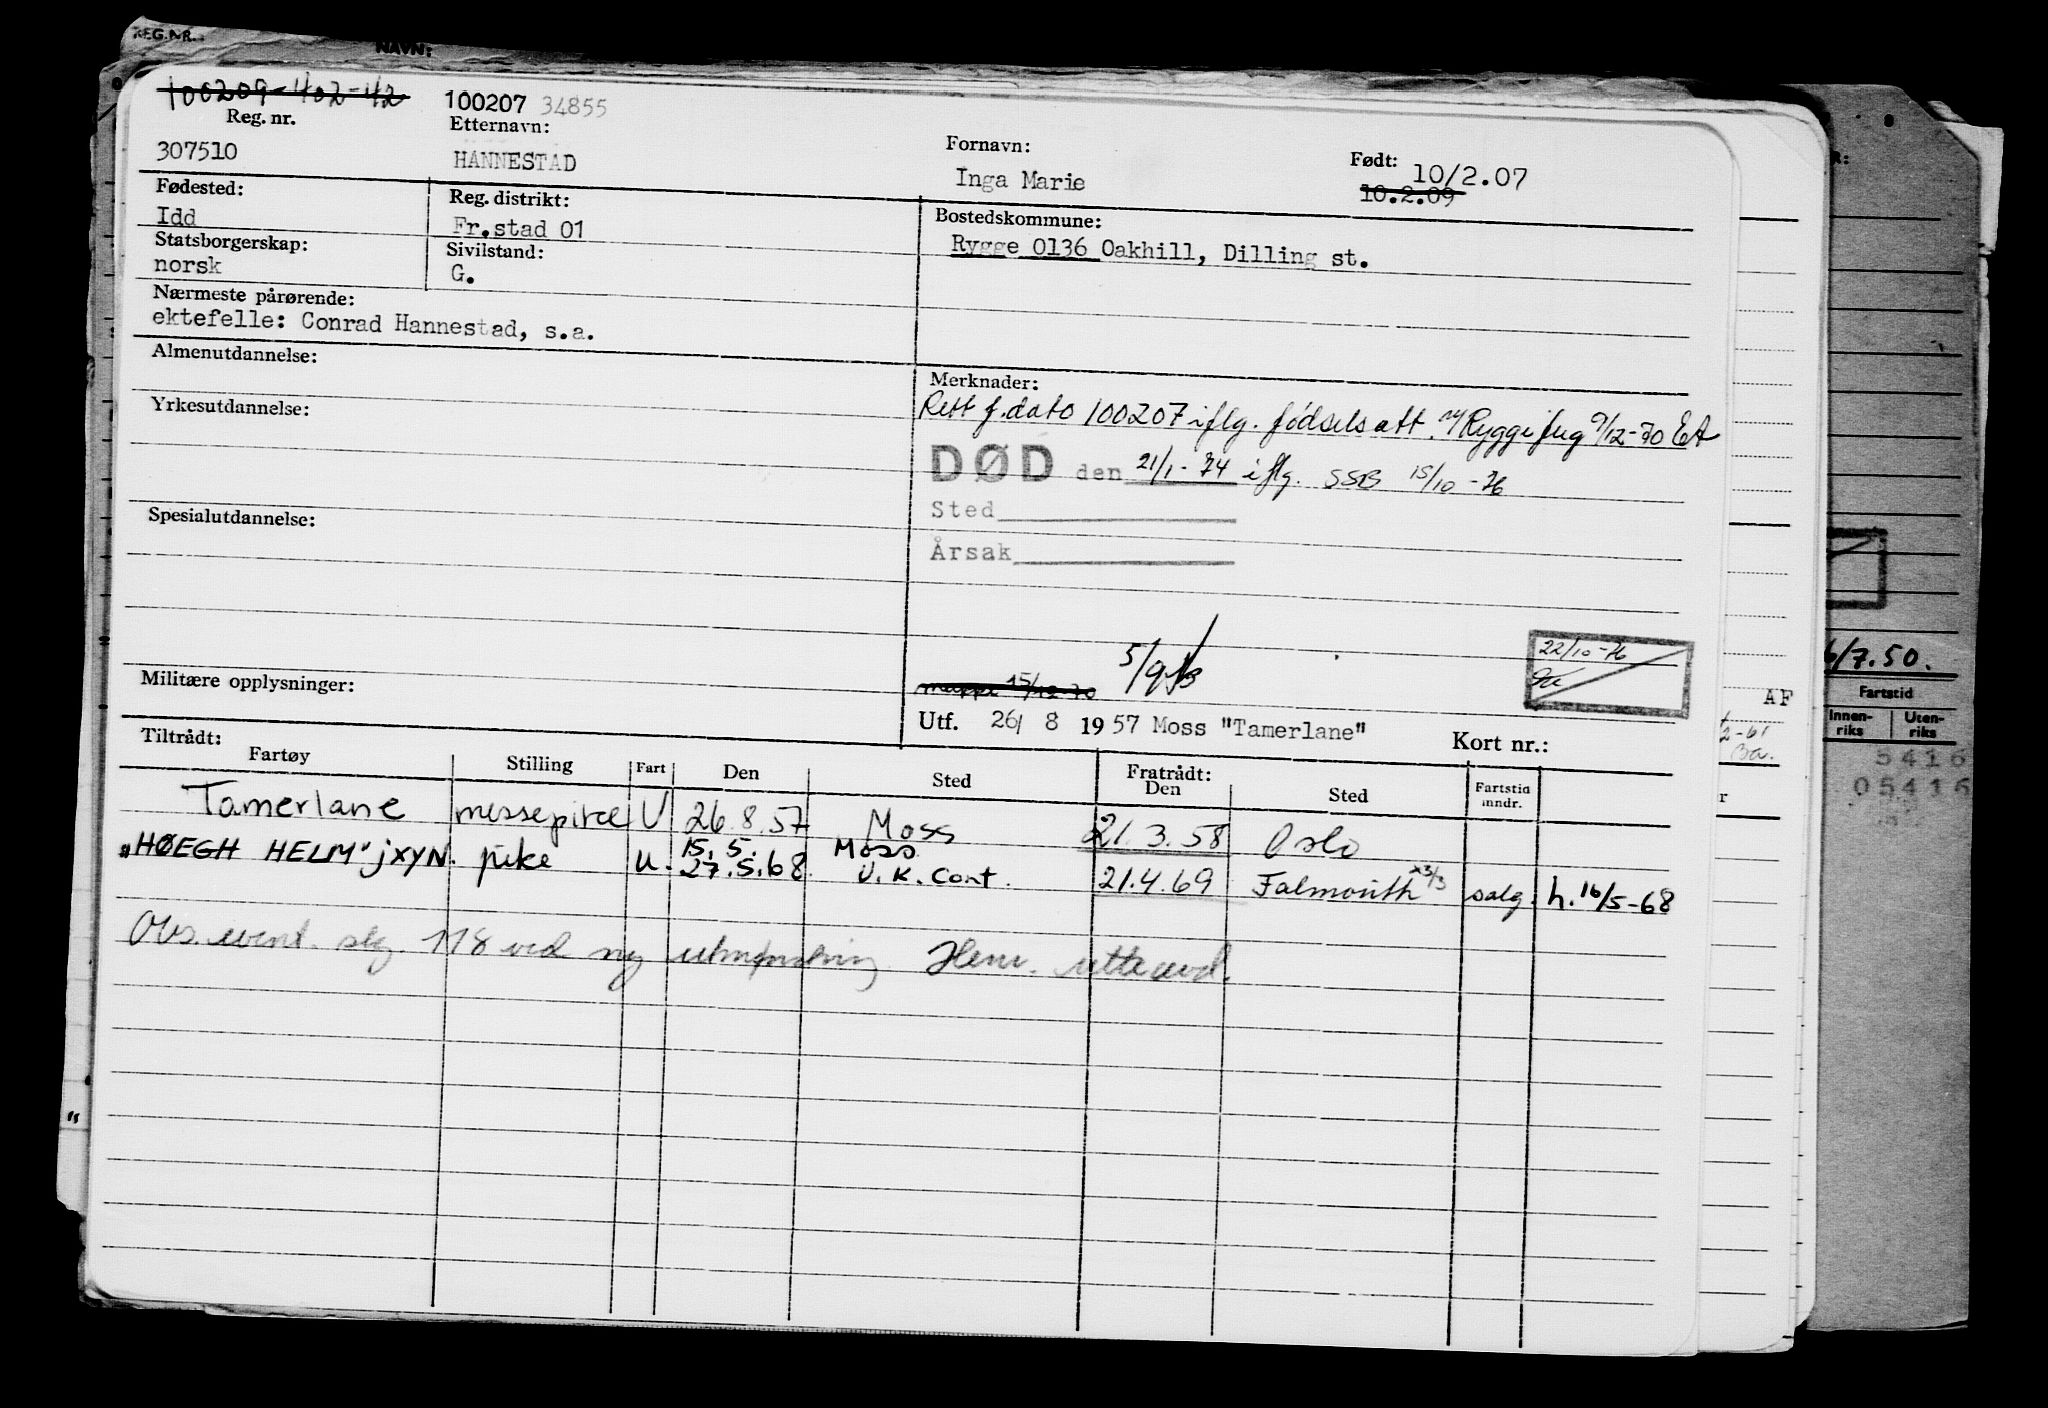 REG.NR.:
NAVN:
100209-402-42 100207 34855
Reg. nr. Etternavn: Fornavn: Født:
307510 HANNESTAD Inga Marie 10/2.07
10.2.09
Fødested: Reg. distrikt: Bostedskommune:
Idd Fr.stad 01 Rygge 0136 Oakhill, Dilling st.
Statsborgerskap: Sivilstand:
norsk G.
Nærmeste pårørende:
ektefelle: Conrad Hannestad, s.a.
Almenutdannelse: Merknader:
Rett f.dato 100207 iflg. fødselsatt. Rygge 9/12-70 EA
Yrkesutdannelse:
DØD den 21/1-74 iflg. SSB 15/10-76
Sted
Spesialutdannelse:
Årsak
5/9
22/10-76
Militære opplysninger:
15/12-70
Utf. 26/ 8 1957 Moss "Tamerlane" Kort nr.:
Tiltrådt: Fratrådt:
Fartøy Stilling Fart Den Sted Den Sted Fartstid inndr.
Tamerlane messepike U 26.8.57 Moss 21.3.58 Oslo
15.5. Moss
"HØEGH HELM" jXYN. pike u. 27.5.68 U.K. Cont. 21.4.69 Falmouth 23/3 salg. h. 16/5-68
Obs. event. slg. 118 ved ny utmønstring Henv. rulleavd.
6/7.50.
Fartstid
Innen-riks Uten-riks
AF
5416
05416